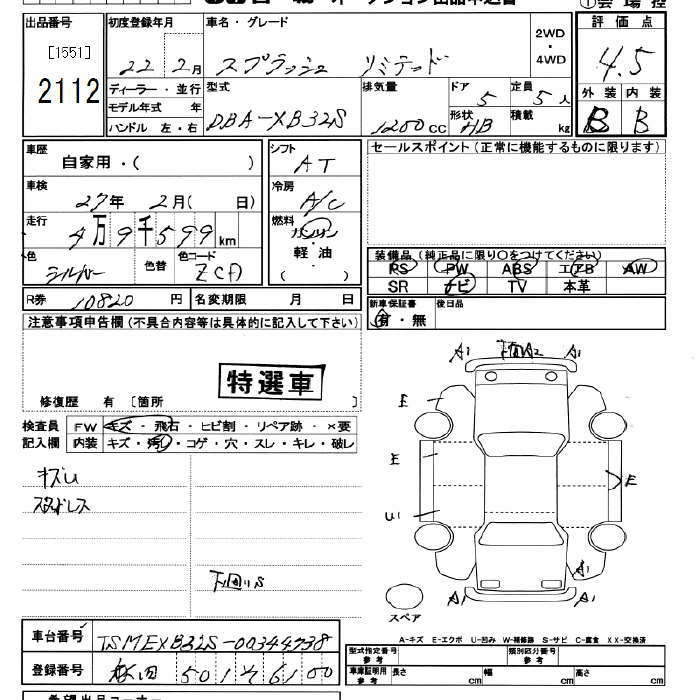 出品番号 初度登録年月 車名・グレード 2WD・4WD 評価点
[1551]
2112
22年 2月 スプラッシュ リミテッド 4.5
ディーラー・並行 型式 排気量 ドア 5 定員 5人 外装 内装
モデル年式 年 DBA-XB32S 1200cc 形状 HB 積載 kg B B
ハンドル 左・右
車歴 シフト セールスポイント(正常に機能するものに限ります)
自家用・( ) AT
車検 冷房
27年 2月( 日) A/C
走行 燃料
4万9千599km ガソリン
軽油
( )
色 色替 色コード 装備品(純正品に限り○をつけてください)
シルバー ZCA PS PW ABS エアB AW
SR ナビ TV 本革
R券 10820円 名変期限 月 日 新車保証書 後日品
有・無
注意事項申告欄(不具合内容等は具体的に記入して下さい)
特選車
修復歴 有 [箇所 ]
検査員 FW キズ・飛石・ヒビ割・リペア跡・×要
記入欄 内装 キズ・汚れ・コゲ・穴・スレ・キレ・破レ
A1 A2 A1
E
E E
U1
A1
A1 A1
スペア
スタッドレス
下回りS
A-キズ E-エクボ U-凹み W-補修跡 S-サビ C-腐食 XX-交換済
車台番号 TSMEXB32S-00344738
登録番号
型式指定番号 参考 類別区分番号 参考
車庫証明用 参考 長さ cm 幅 cm 高さ cm
希望出品コーナー